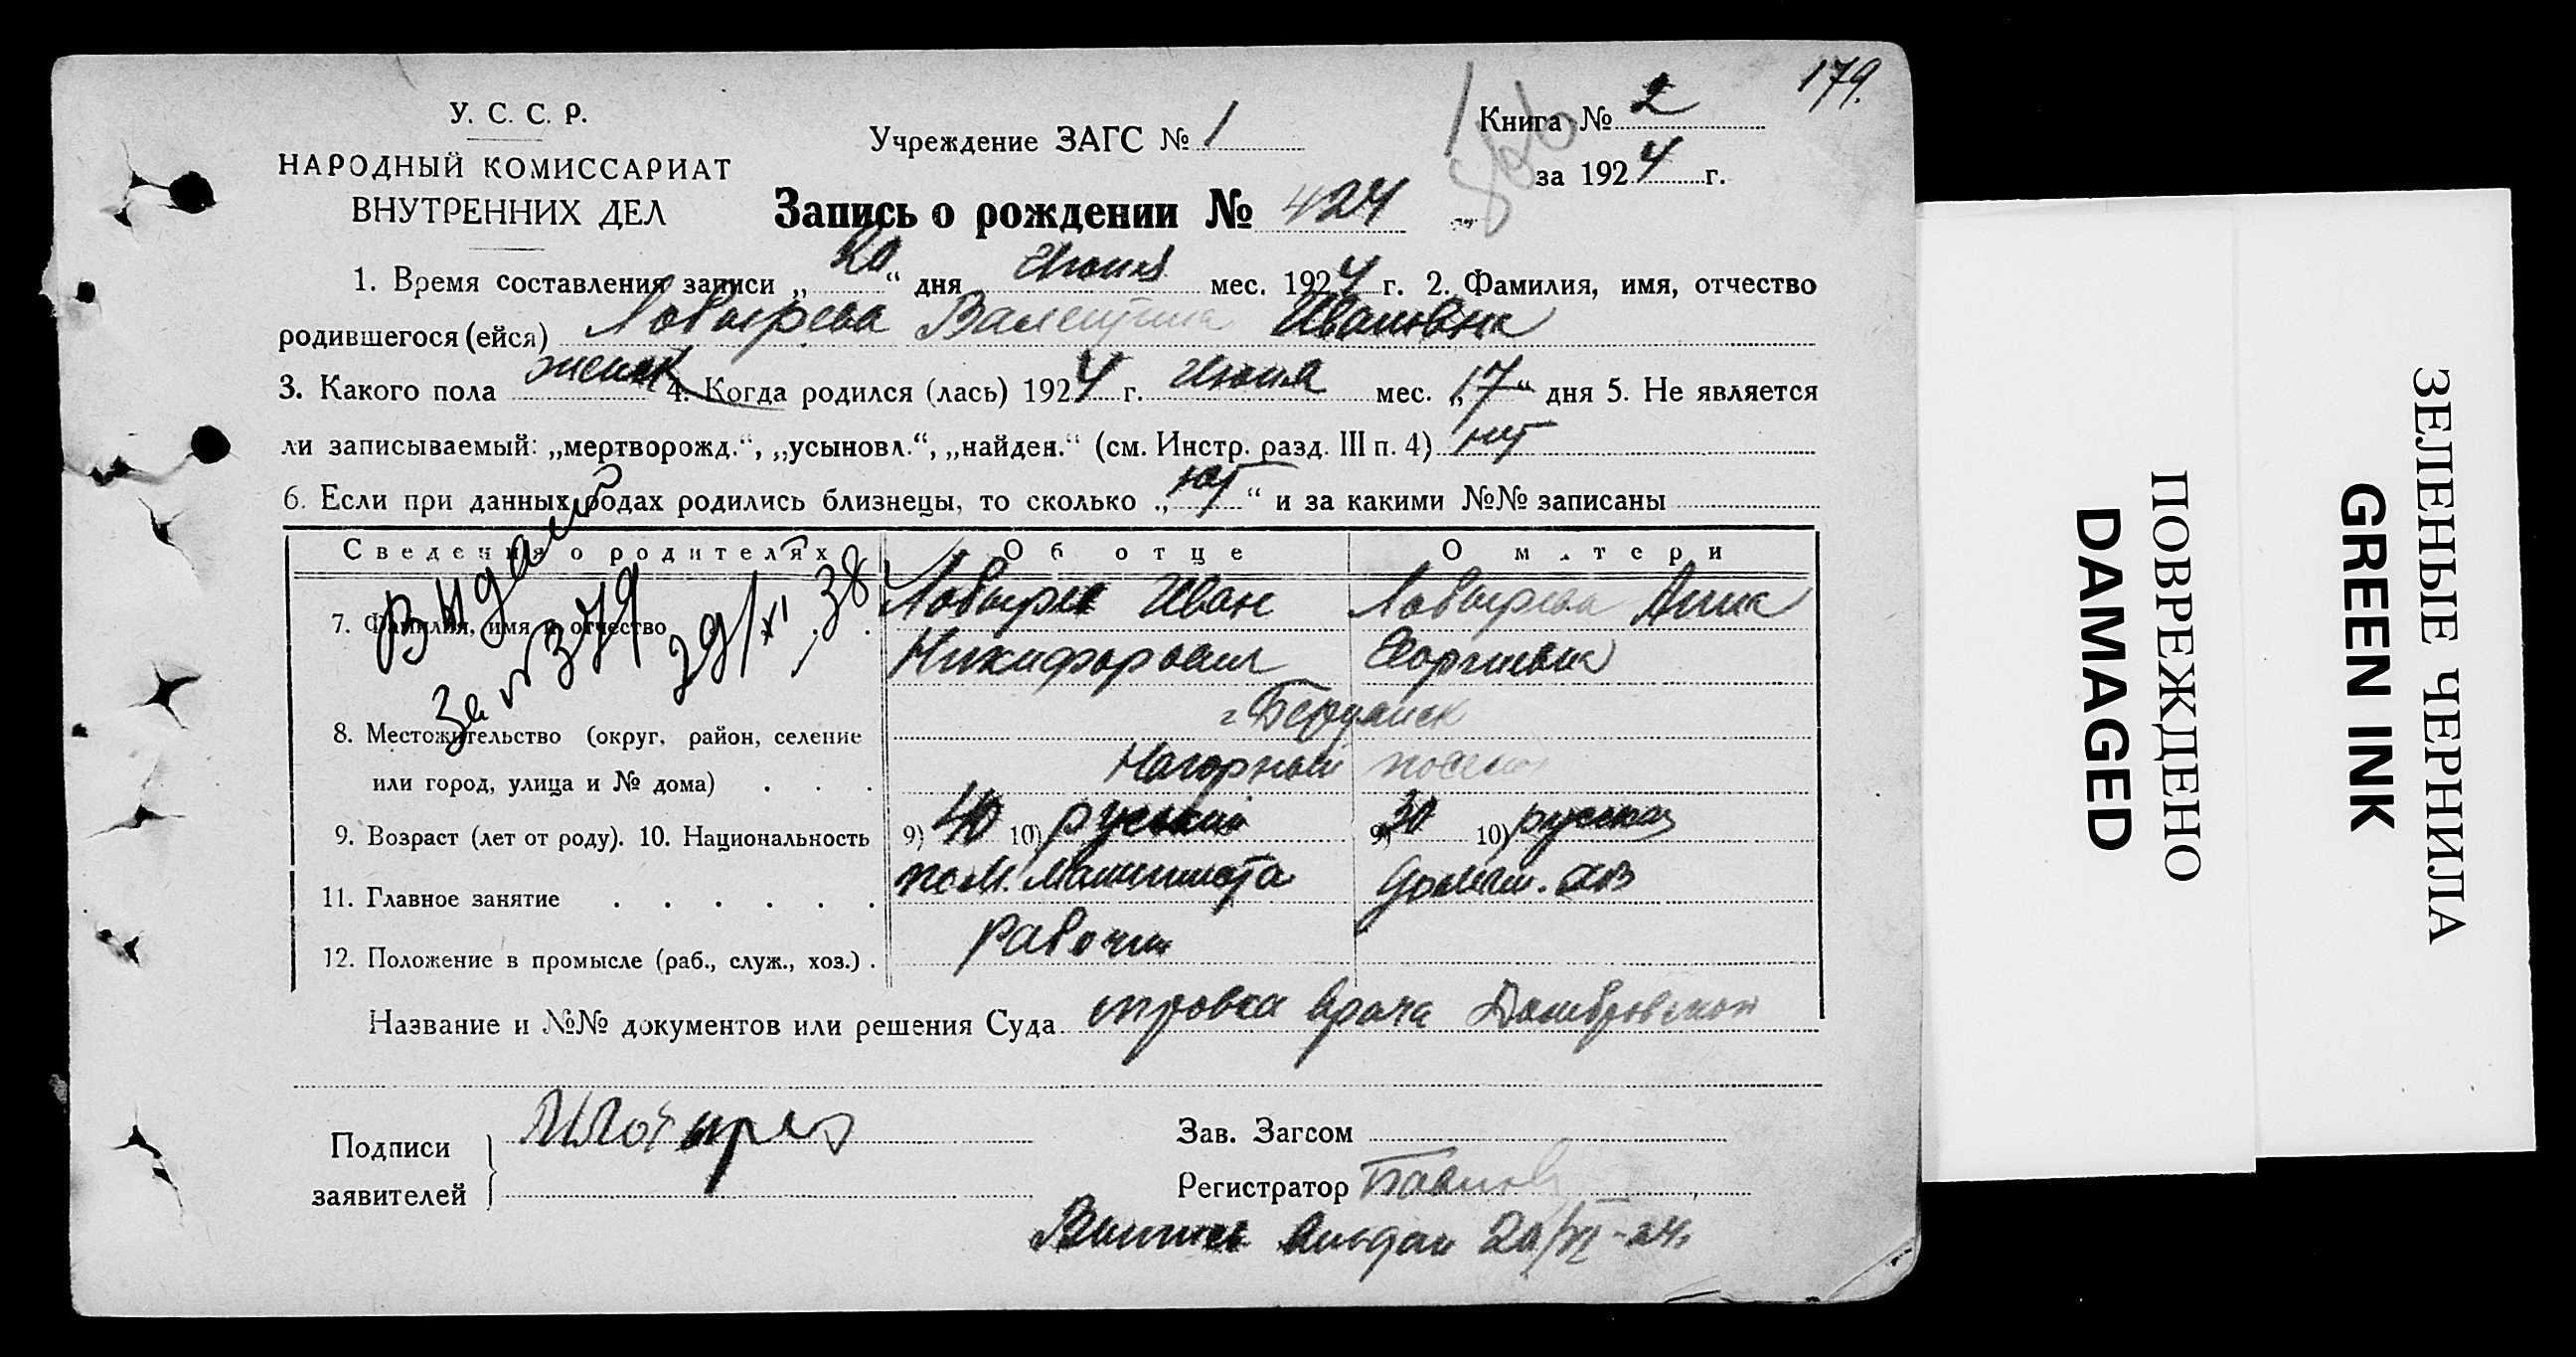 179.
У. С. С. Р.
НАРОДНЫЙ КОМИССАРИАТ
ВНУТРЕННИХ ДЕЛ
Учреждение ЗАГС № 1
Книга № 2
за 1924 г.
Запись о рождении № 424
1. Время составления записи „20“ дня Июня мес. 1924 г. 2. Фамилия, имя, отчество
родившегося (ейся) Ловырева Валентина Ивановна
3. Какого пола женск 4. Когда родился (лась) 1924 г. Июня мес. „17“ дня 5. Не является
ли записываемый: „мертворожд.“, „усыновл.“, „найден.“ (см. Инстр. разд. III п. 4) нет
6. Если при данных родах родились близнецы, то сколько „нет“ и за какими №№ записаны
Сведения о родителях Об отце О матери
7. Фамилия, имя и отчество Ловырев Иван Ловырева Анна
Никифорович Георгиевна
Выдан
За № 379 29/XI 38
8. Местожительство (округ, район, селение г Бердянск
или город, улица и № дома) . . . Нагорный поселок
9. Возраст (лет от роду). 10. Национальность 9) 40 10) русский 9) 30 10) русская
11. Главное занятие . . . . . . пом. машиниста домаш. хоз
12. Положение в промысле (раб., служ., хоз.) . рабочий
Название и №№ документов или решения Суда справка врача Домбровской
Подписи
заявителей
Зав. Загсом
Регистратор
Выпись выдан 20/VI-24.
ПОВРЕЖДЕНО
DAMAGED
ЗЕЛЕНЫЕ ЧЕРНИЛА
GREEN INK